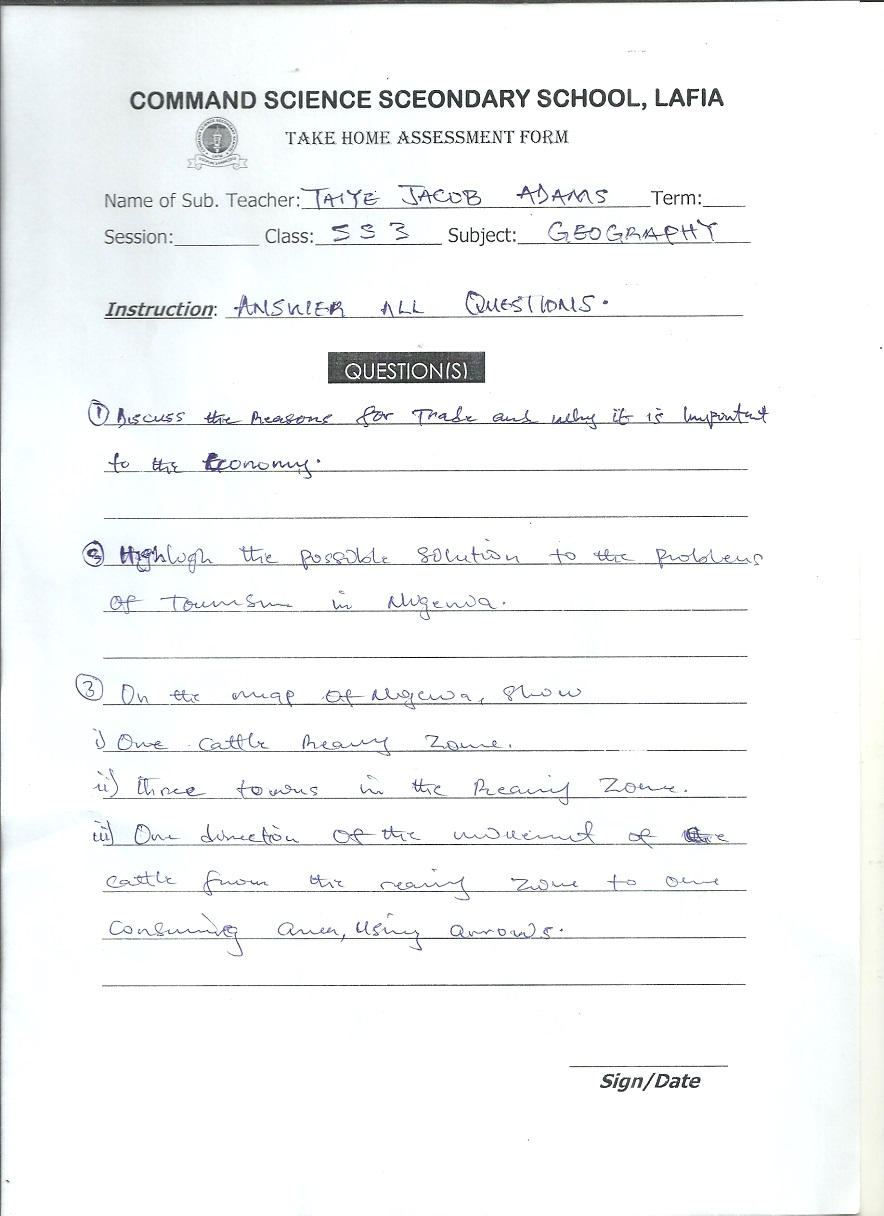 COMMAND SCIENCE SCEONDARY SCHOOL, LAFIA
TAKE HOME ASSESSMENT FORM
Name of Sub. Teacher: TAIYE JACOB ADAMS Term:
Session: Class: SS3 Subject: GEOGRAPHY
Instruction: ANSWER ALL QUESTIONS.
QUESTION(S)
① Discuss the Reasons for Trade and why it is Important
to the Economy.
② Highligh the possible solution to the problems
of Tourism in Nigeria.
③ On the map of Nigeria, show
i) One cattle Rearing Zone.
ii) three towns in the Rearing Zone.
iii) One direction of the movement of the
cattle from the rearing zone to one
consuming area, using arrows.
Sign/Date